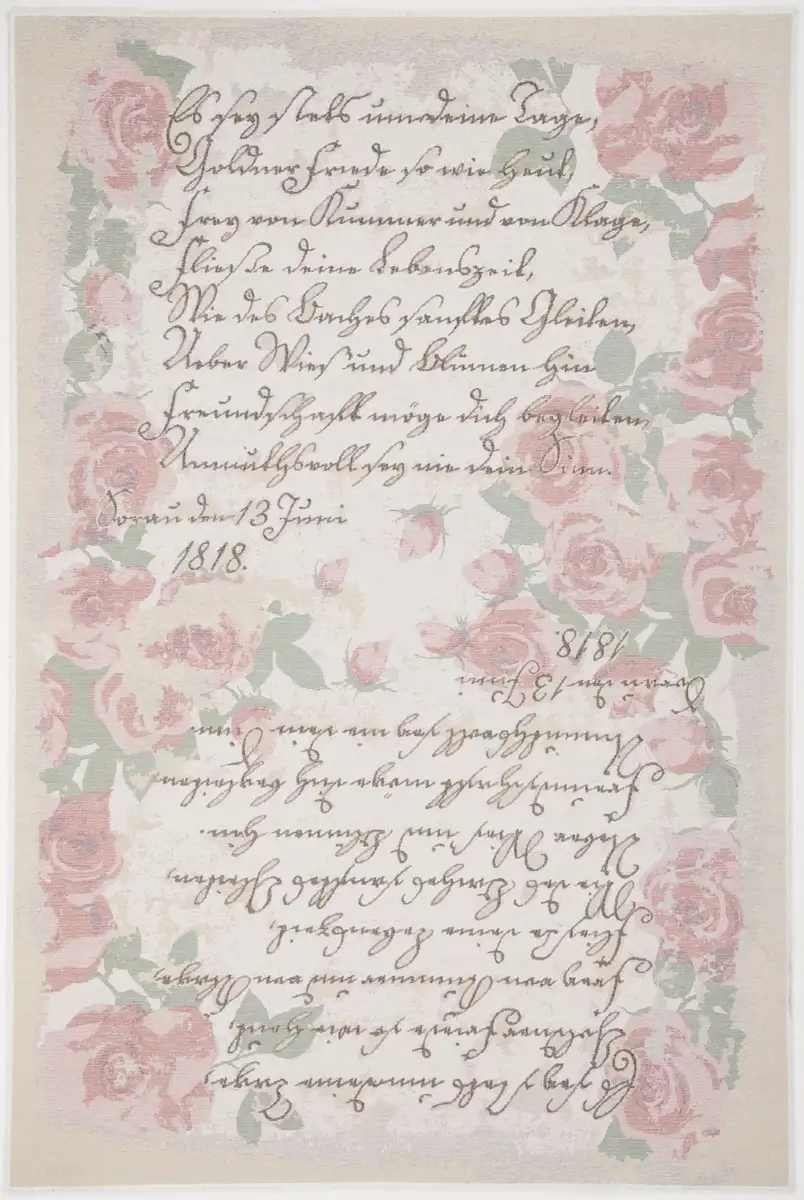 Es sey stets um deine Tage,
Goldner Friede so wie heut,
Frey von Kummer und von Klage,
Fließe deine Lebenszeit,
Wie des Baches sanftes Gleiten,
Ueber Wies und Blumen hin
Freundschaft möge dich begleiten,
Unmuthsvoll sey nie dein Sinn.
Sorau den 13 Juni
1818.
Es sey stets um deine Tage,
Goldner Friede so wie heut,
Frey von Kummer und von Klage,
Fließe deine Lebenszeit,
Wie des Baches sanftes Gleiten,
Ueber Wies und Blumen hin.
Freundschaft möge dich begleiten
Unmuthsvoll sey nie dein Sinn
Sorau den 13 Juni
1818.